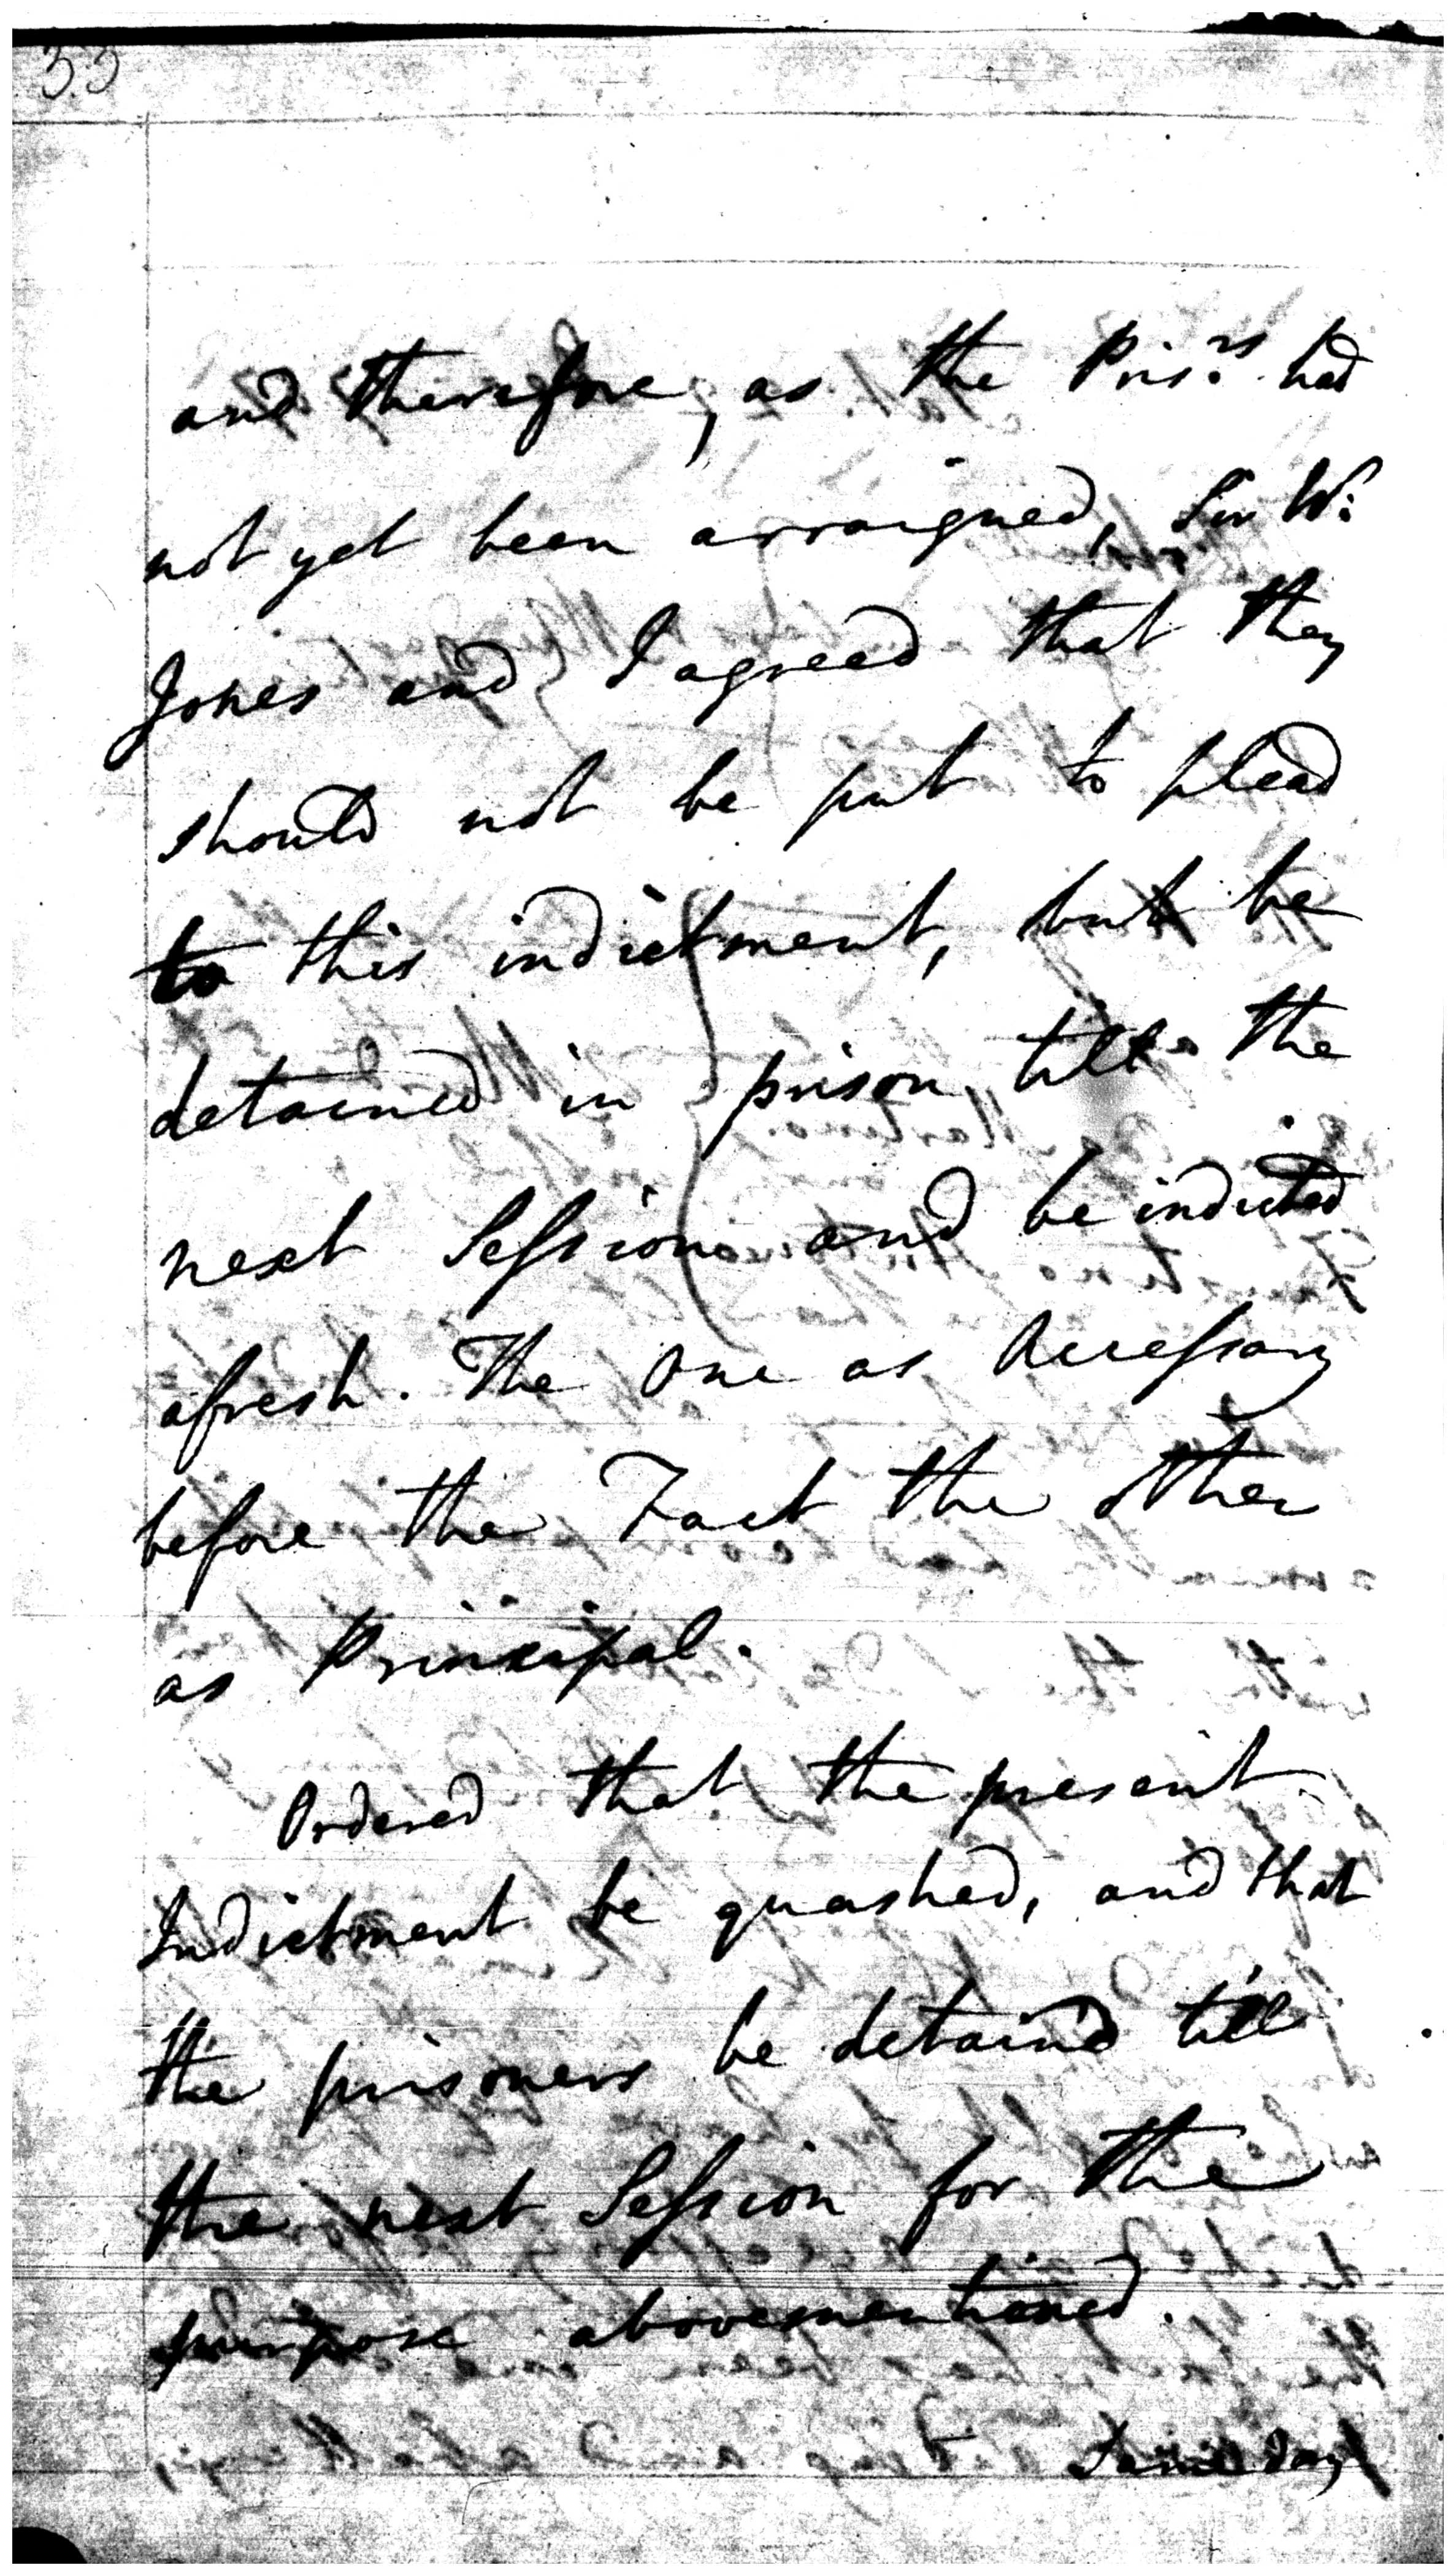 33
and therefore, as the Pris.rs had
not yet been arraigned, Sir W:
Jones and I agreed that they
should not be put to plead
to this indictment, but be
detained in prison till the
next Session and be indicted
afresh. The one as Accessary
before the Fact the other
as Principal.
Ordered that the present
Indictment be quashed, and that
the prisoners be detain'd till
the next Session for the
purpose abovementioned.
Same Day